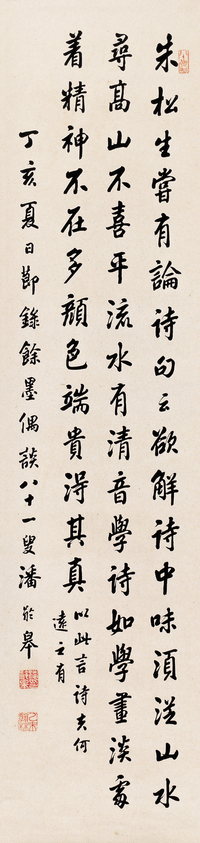 朱松生嘗有論詩句云欲解詩中味須從山水
尋高山不喜平流水有清音學詩如學畫淡處
着精神不在多顏色端貴得其真
以此言詩夫何
遠之有
丁亥夏日節錄餘墨偶談八十一叟潘齡皋